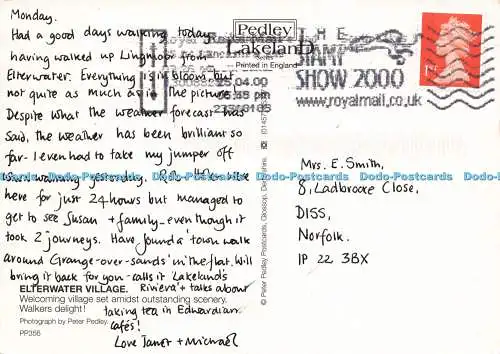 Monday.
Had a good days walking today
having walked up Lingmoor from
Elterwater. Everything is in bloom but
not quite as much as in the picture!
Despite what the weather forecast has
said, the weather has been brilliant so
far - I even had to take my jumper off
walking yesterday.
here for just 24 hours but managed to
get to see Susan + family - even though it
took 2 journeys. Have found a 'town walk
around Grange-over-sands' in the flat. Will
bring it back for you - calls it 'Lakeland's
Riviera' + talks about
taking tea in Edwardian
cafés!
Love Janet + Michael
ELTERWATER VILLAGE.
Welcoming village set amidst outstanding scenery.
Walkers delight!
Photograph by Peter Pedley.
PP356
Pedley
Lakeland
Series
Printed in England
© Peter Pedley Postcards, Glossop, Derbyshire.
THE
STAMP
SHOW 2000
www.royalmail.co.uk
25.04.00
05:35 pm
1st
Mrs. E. Smith,
8, Ladbrooke Close,
DISS,
Norfolk.
IP 22 3BX
Dodo-Postcards Dodo-Postcards Dodo-Postcards Dodo-Postcards